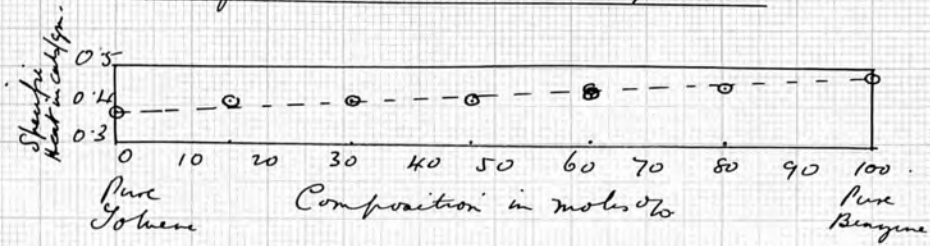 Specific
Heat in cals/gm.
0.5
0.4
0.3
0 10 20 30 40 50 60 70 80 90 100
Pure
Toluene
Composition in moles %
Pure
Benzene